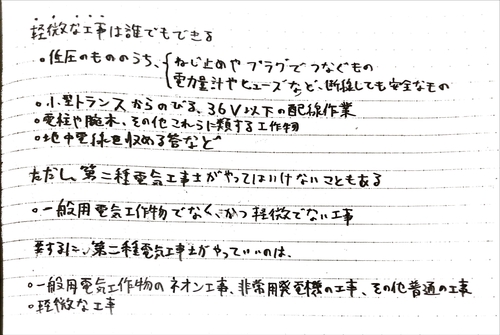 軽微な工事は誰でもできる
・低圧のもののうち、{ねじ止めやプラグでつなぐもの
電力量計やヒューズなど、断線しても安全なもの
・小型トランスからのびる、36V以下の配線作業
・電柱や腕木、その他これらに類する工作物
・地中電線を収める管など
ただし、第二種電気工事士がやってはいけないこともある
・一般用電気工作物でなく、かつ軽微でない工事
要するに、第二種電気工事士がやっていいのは、
・一般用電気工作物のネオン工事、非常用発電機の工事、その他普通の工事
・軽微な工事